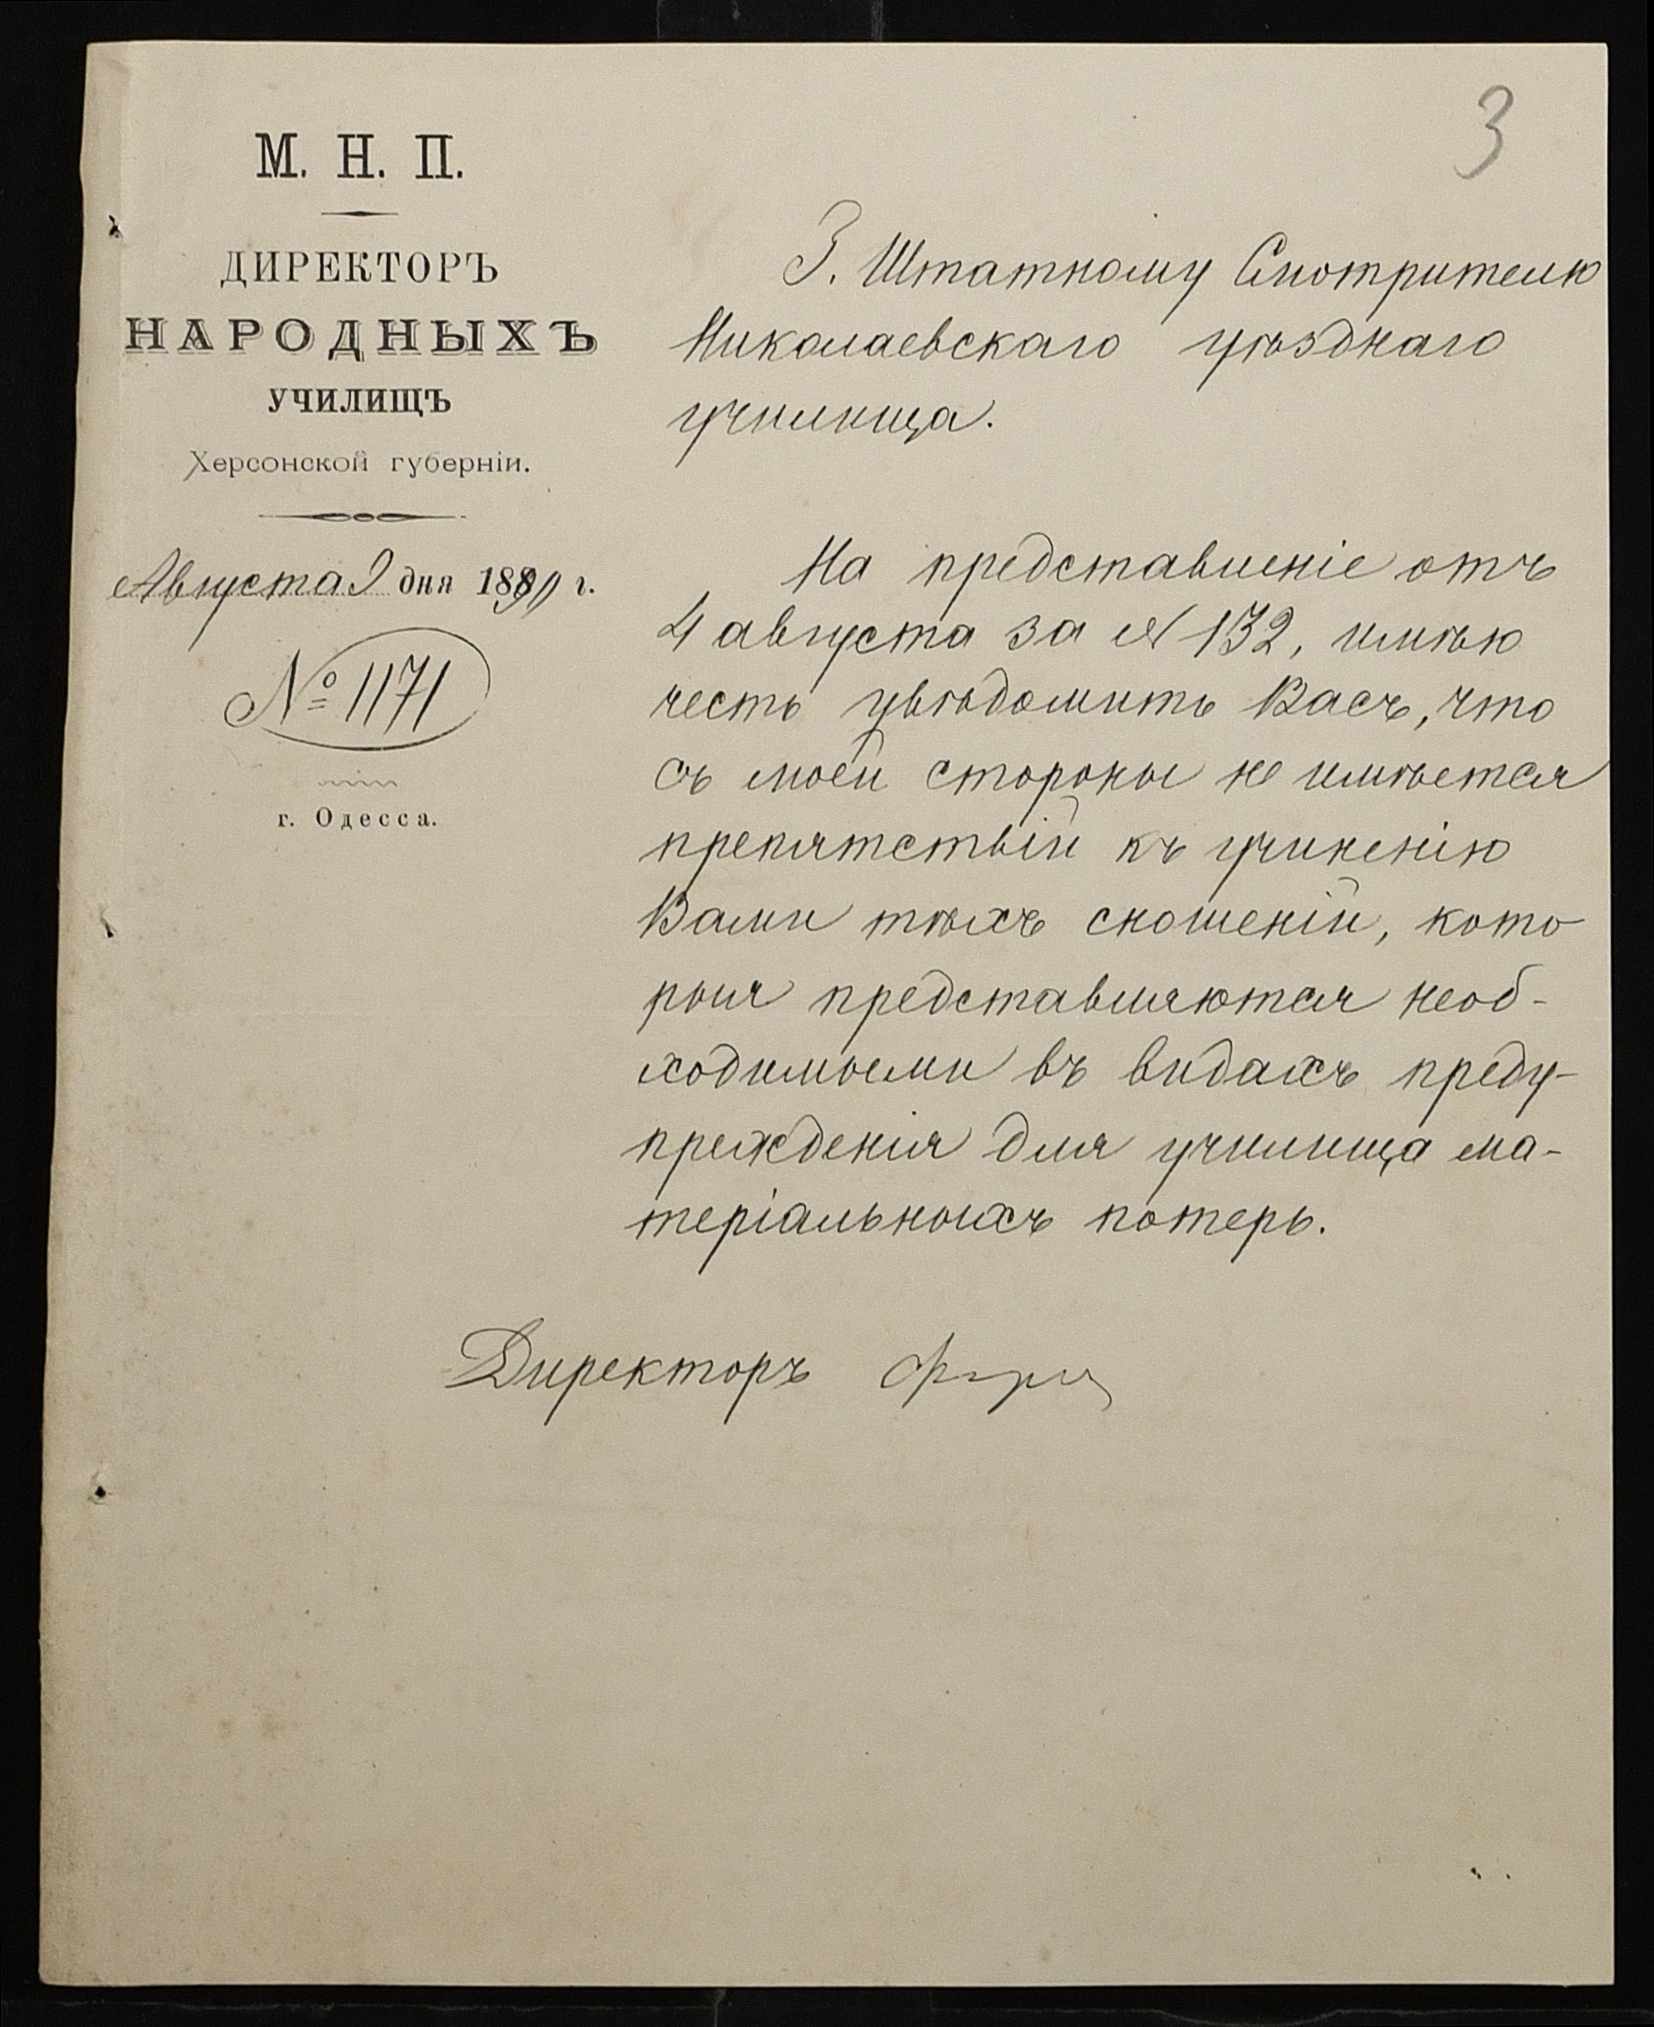 3
М. Н. П.
ДИРЕКТОРЪ
НАРОДНЫХЪ
УЧИЛИЩЪ
Херсонской губерніи.
Августа 9 дня 1890 г.
№ 1171
г. Одесса.
Г. Штатному Смотрителю
Николаевскаго уѣзднаго
училища.
На представленіе отъ
4 августа за № 132, имѣю
честь увѣдомить Васъ, что
съ моей стороны не имѣется
препятствій къ учиненію
Вами тѣхъ сношеній, кото
рыя представляются необ-
ходимыми въ видахъ преду-
прежденія для училища ма-
теріальныхъ потерь.
Директоръ